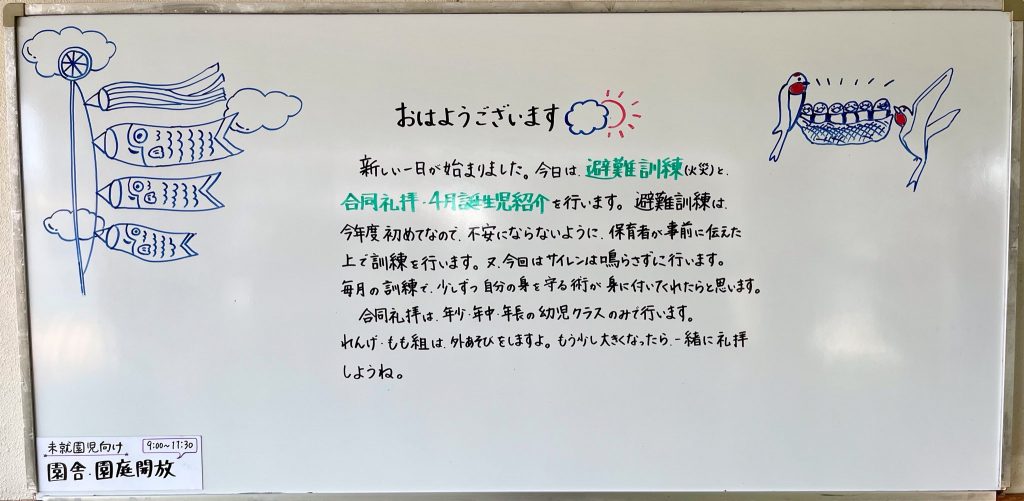 おはようございます
新しい一日が始まりました。今日は、避難訓練(火災)と、
合同礼拝・4月誕生児紹介を行います。避難訓練は、
今年度初めてなので、不安にならないように、保育者が事前に伝えた
上で訓練を行います。又、今回はサイレンは鳴らさずに行います。
毎月の訓練で、少しずつ自分の身を守る術が身に付いてくれたらと思います。
合同礼拝は、年少・年中・年長の幼児クラスのみで行います。
れんげ・もも組は、外あそびをしますよ。もう少し大きくなったら、一緒に礼拝
しようね。
未就園児向け 9:00~11:30
園舎・園庭開放